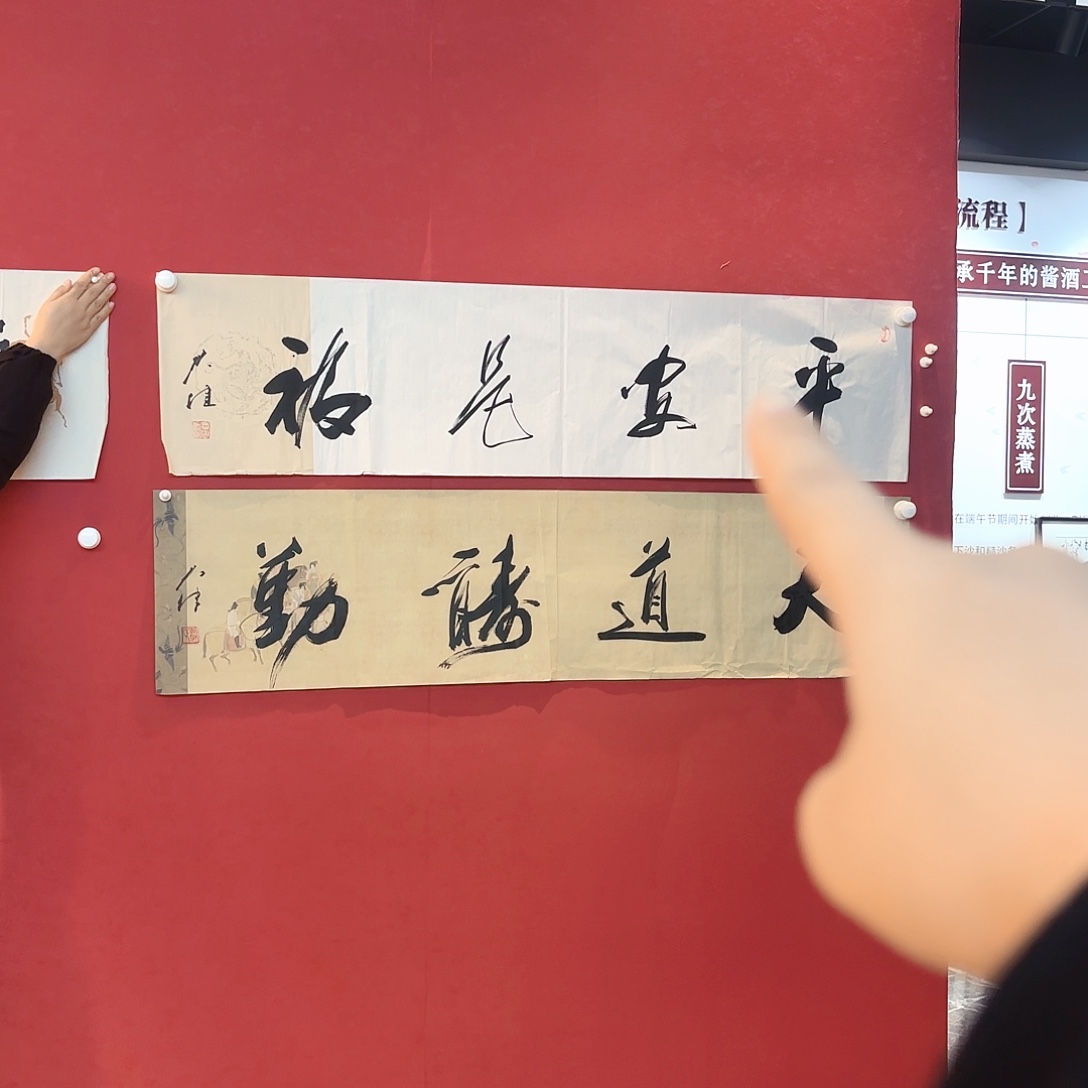 平安是福
天道酬勤
流程】
承千年的酱酒工
九次蒸煮
在端午节期间开始
下沙和